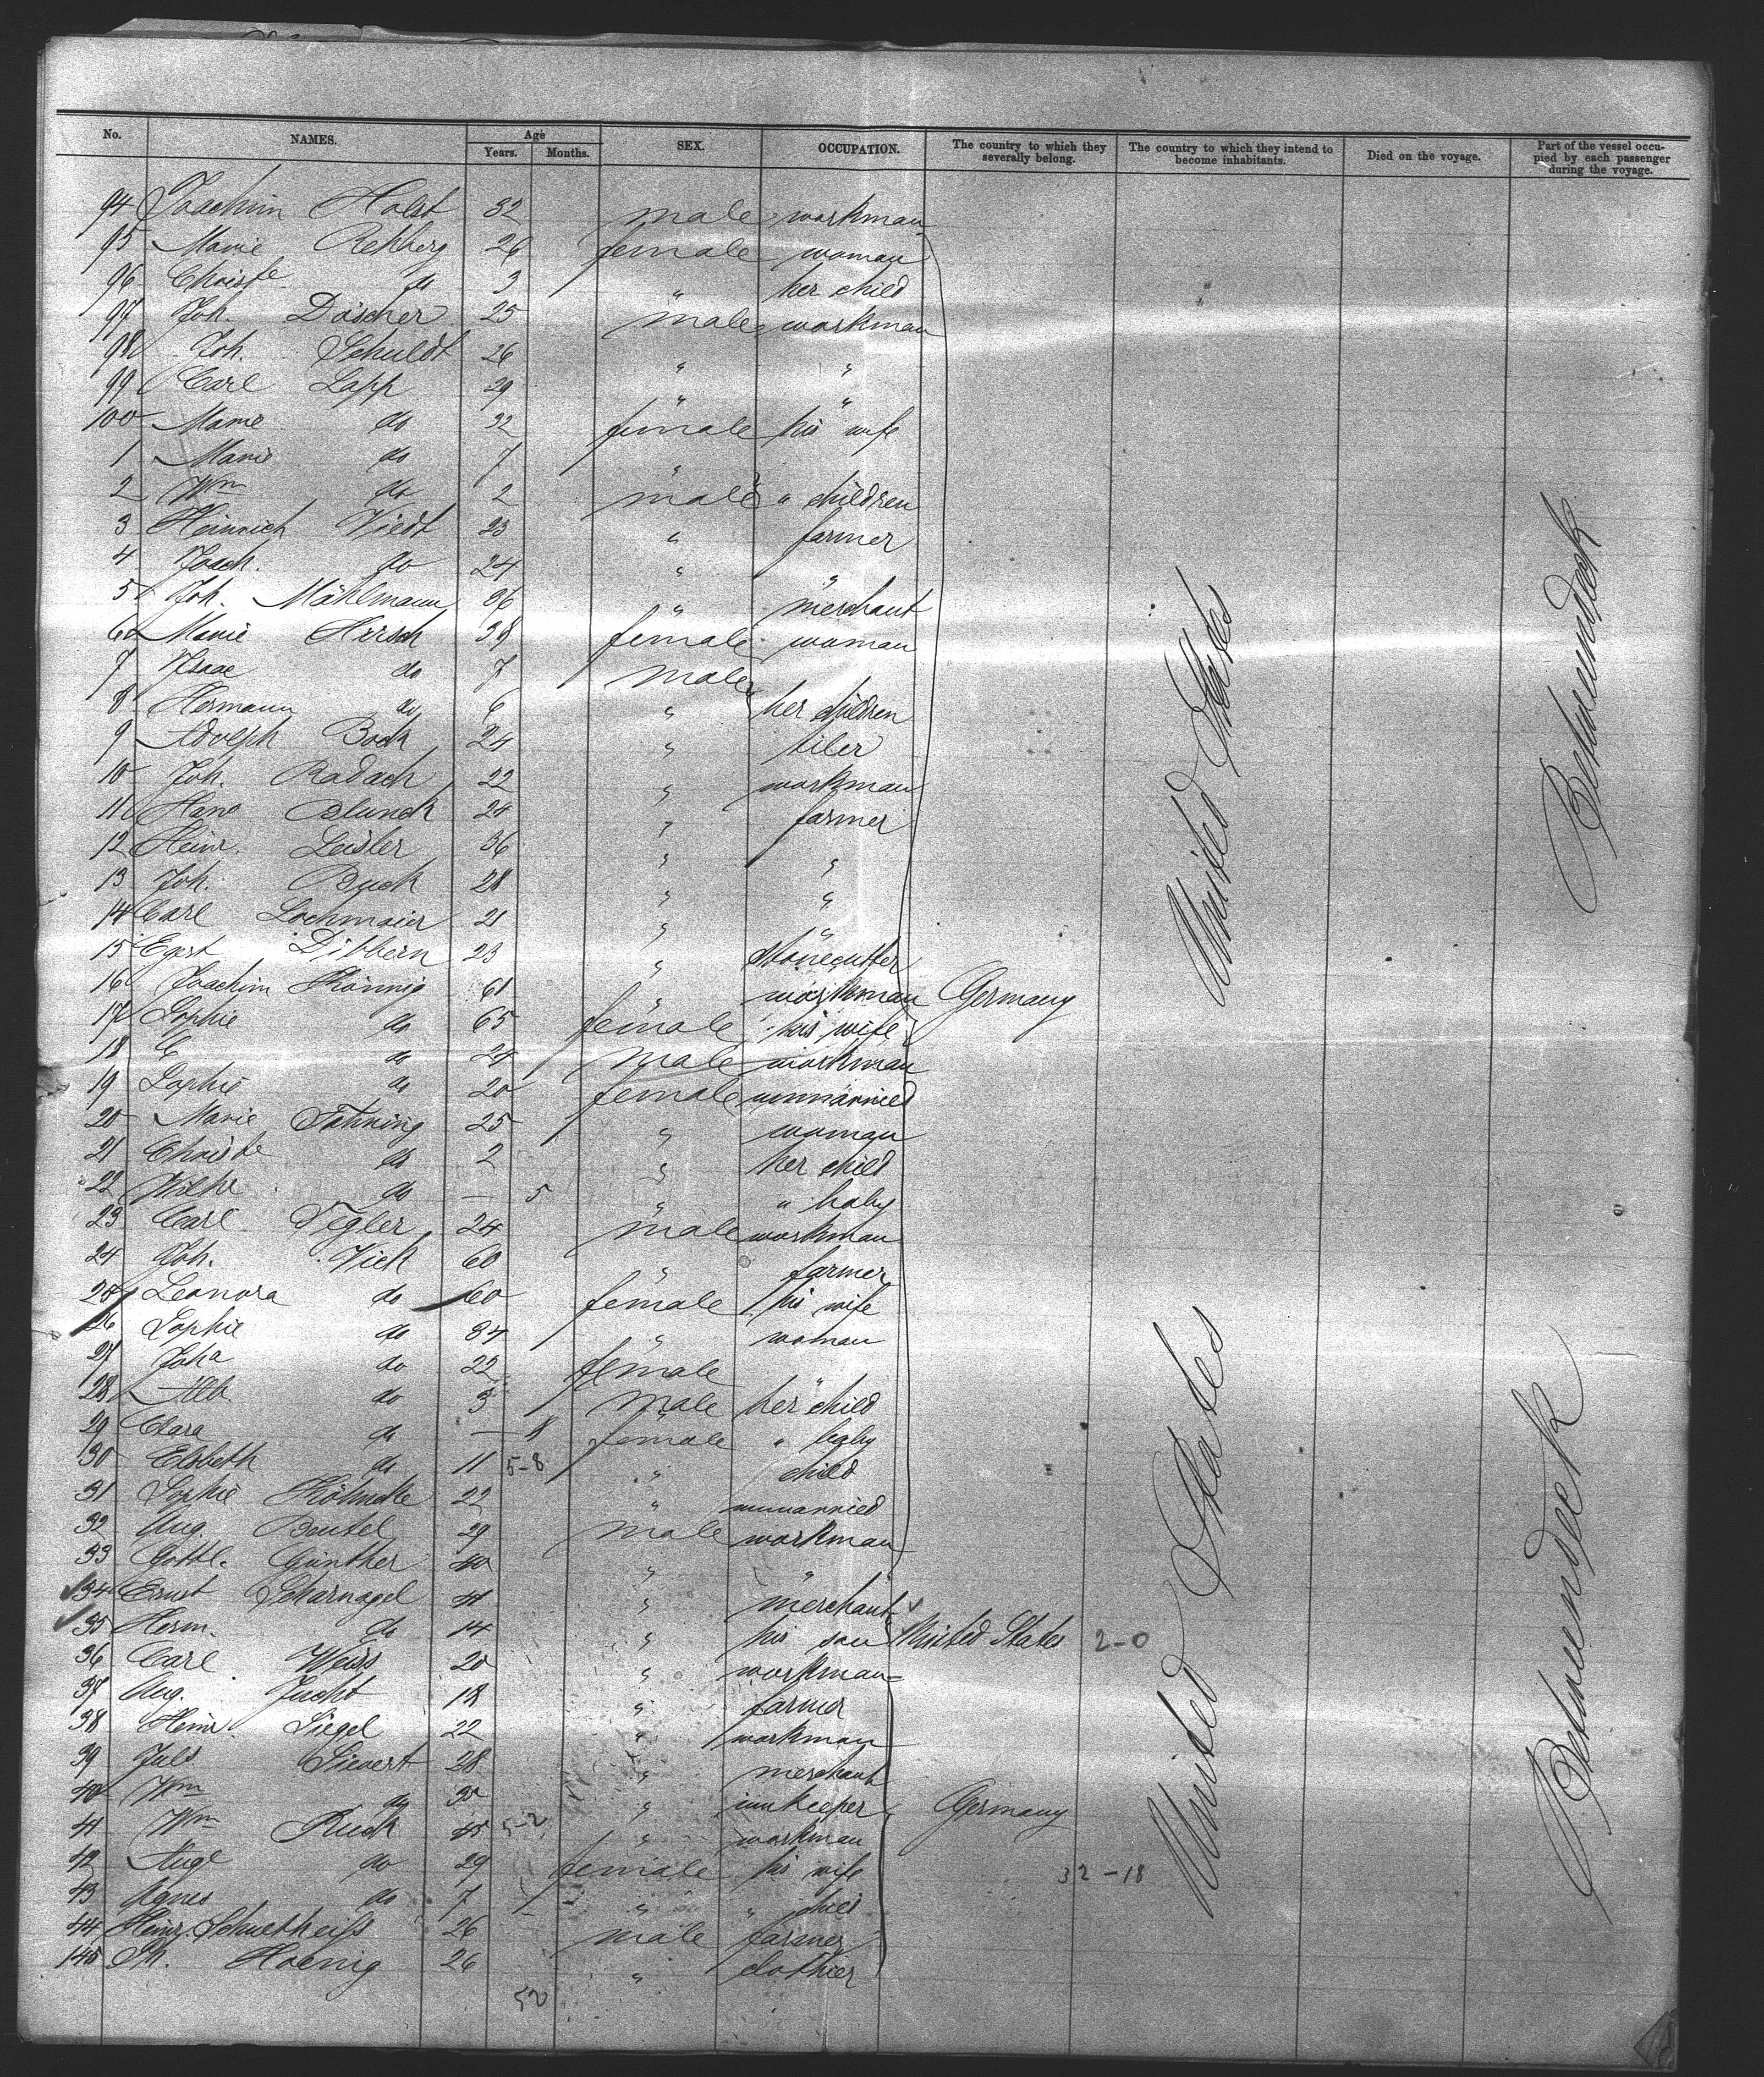 No. NAMES. Age Years. Months. SEX. OCCUPATION. The country to which they severally belong. The country to which they intend to become inhabitants. Died on the voyage. Part of the vessel occupied by each passenger during the voyage.
94 Joachim Holst 32 male workman
95 Marie Rehberg 26 female woman
96 Christe do 3 " her child
97 Joh. Döscher 25 male workman
98 Joh. Schuldt 26 " "
99 Carl Lapp 29 " "
100 Marie do 32 female his wife
1 Marie do 7 "
2 Wm do 2 male " children
3 Heinrich Viedt 23 " farmer
4 Joach. do 24 " "
5 Joh. Mählmann 36 " merchant
6 Marie Hirsch 38 female woman
7 Isaac do 7 male
8 Hermann do 6 " her children
9 Adolph Bock 24 " tiler
10 Joh. Radach 22 " workman
11 Hans Blunck 24 " farmer
12 Heinr. Leisler 36 " "
13 Joh. Buck 28 " "
14 Carl Lochmaier 21 " "
15 Dibbern 23 " stonecutter
16 Joachim Könnig 61 " workman Germany
17 Sophie do 65 female his wife
18 C do 24 male workman
19 Sophie do 20 female unmarried
20 Marie Fahning 25 " woman
21 Christe do 2 " her child
22 Wilhe do — 5 " " baby
23 Carl Tegler 24 male workman
24 Joh. Vick 60 " farmer
25 Leonora do 60 female his wife
26 Sophie do 34 " woman
27 Joha do 22 female "
28 Alb. do 3 male her child
29 Clara do — 8 female " baby
30 Elsbeth do 11 5-8 " child
31 Sophie Köhncke 22 " unmarried
32 Aug. Beutel 29 male workman
33 Gottl. Günther 40 " "
34 Ernst Scharnagel 41 " merchant
35 Herm. do 14 " his son United States 2-0
36 Carl Weiss 20 " workman
37 Aug. Jucht 18 " farmer
38 Heinr. Siegel 22 " workman
39 Juls Sievert 28 " merchant
40 Wm do 30 " innkeeper Germany
41 Wm Ruck 45 5-2 " workman
42 Auge do 29 female his wife 32-18
43 Agnes do 7 " " child
44 Heinr. Schultheiss 26 male farmer
145 M. Hoenig 26 " clothier
52
United States
Betweendeck
United States
Betweendeck